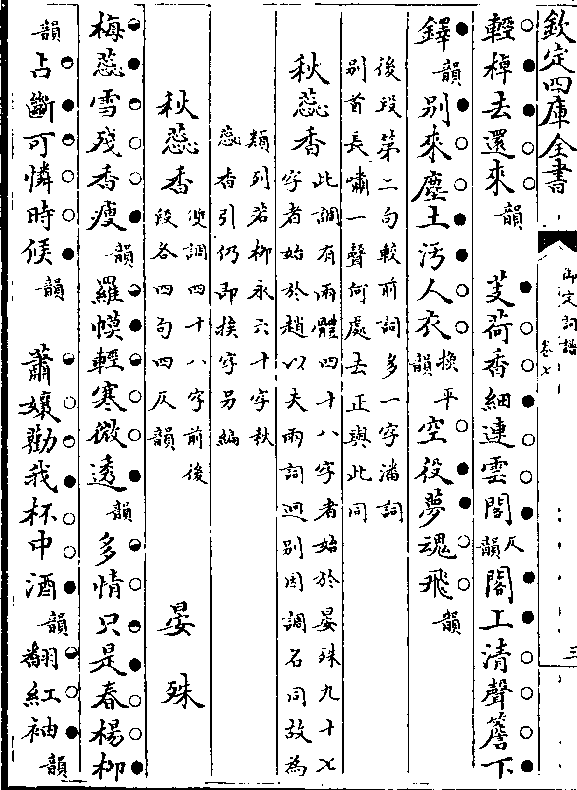 欽定四庫全書
御定詞譜
卷七
三
輕棹去還來韻 芰荷香細連雲閣仄韻閣上清聲簷下
鐸韻別來塵土汚人衣換平韻空役夢魂飛韻
後段第二句較前詞多一字潘詞
別首長嘯一聲何處去正與此同
秋蕊香此調有兩體四十八字者始於晏殊九十七
字者始於趙以夫兩詞迥別因調名同故為
類列若柳永六十字秋
蕊香引仍即挨字另編
秋蕊香雙調四十八字前後
段各四句四仄韻 晏殊
梅蕊雪殘香瘦韻羅幙輕寒微透韻多情只是春楊柳
韻占斷可憐時候韻 蕭孃勸我杯中酒韻翻紅袖韻